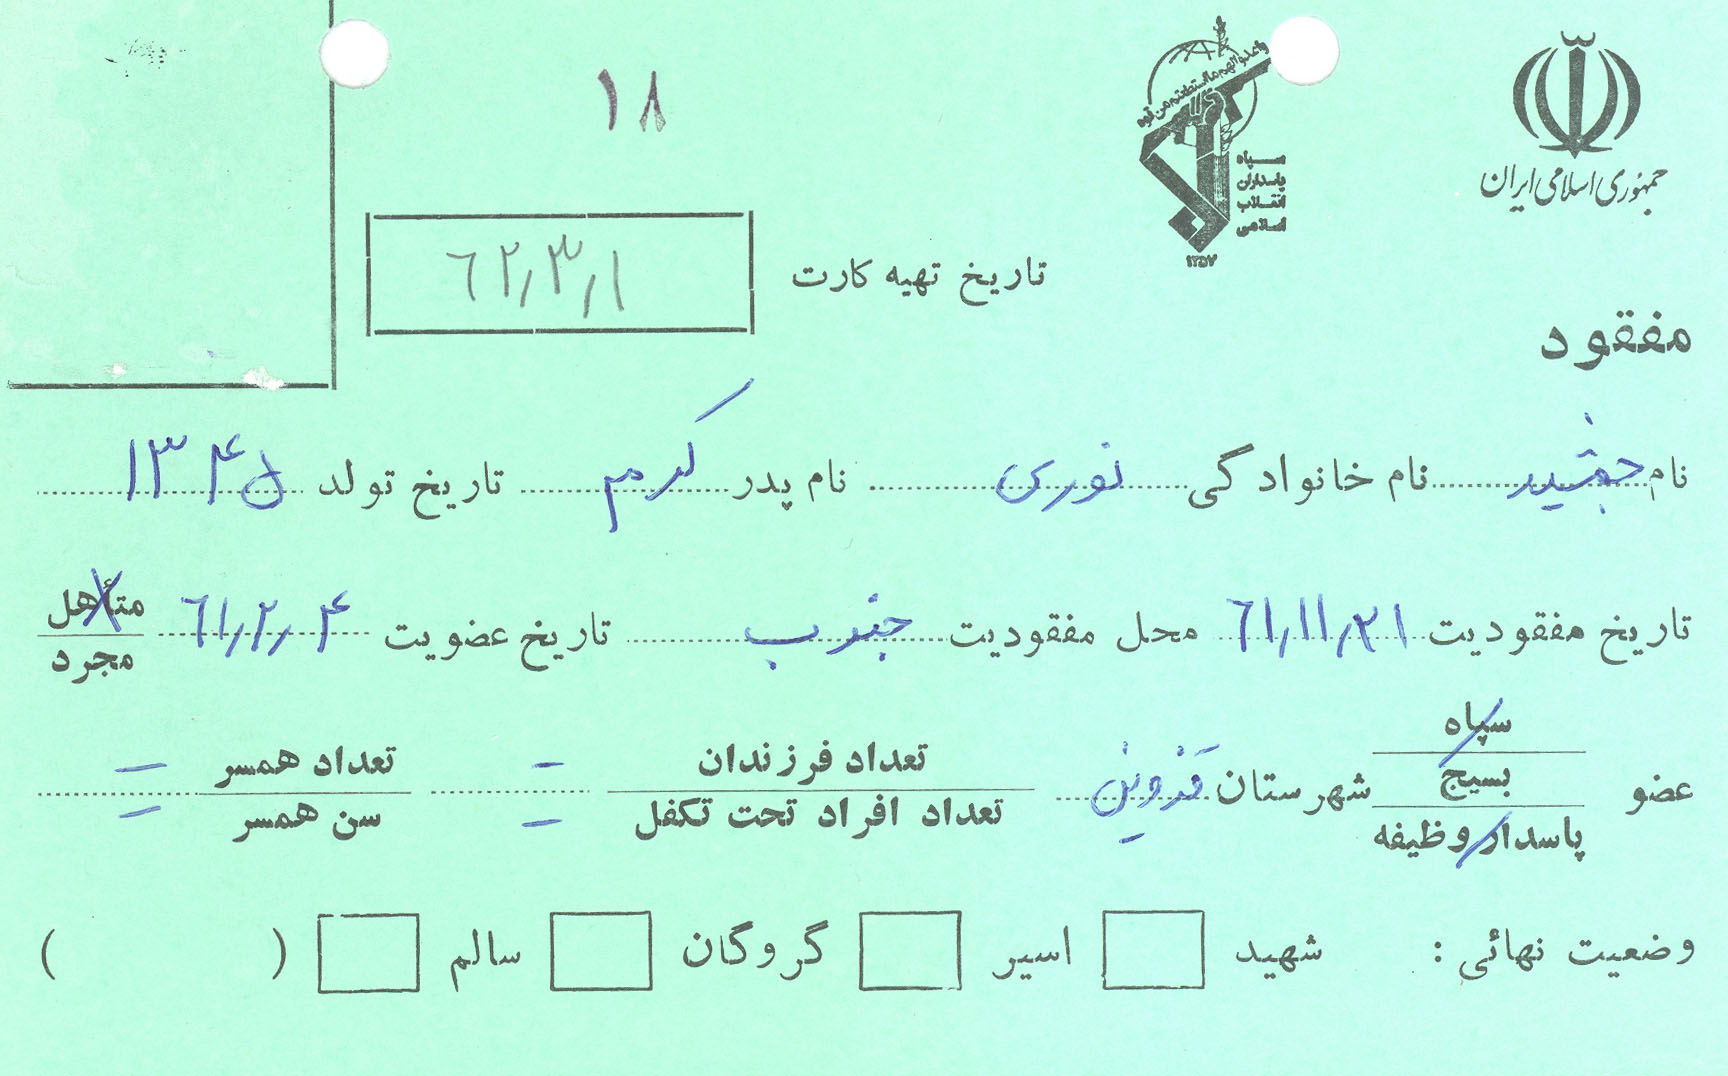 جمهوری اسلامی ایران
واعدوا لهم ما استطعتم من قوه
سپاه
پاسداران
انقلاب
اسلامی
۱۳۵۷
۱۸
تاریخ تهیه کارت ۶۲٫۳٫۱
مفقود
نام جمشید نام خانوادگی نوری نام پدر کرم تاریخ تولد ۱۳۴۵
تاریخ مفقودیت ۶۱٫۱۱٫۲۱ محل مفقودیت جنوب تاریخ عضویت ۶۱٫۲٫۴ متأهل
مجرد
عضو سپاه
بسیج
پاسدار وظیفه
شهرستان قزوین تعداد فرزندان – تعداد همسر –
تعداد افراد تحت تکفل – سن همسر –
وضعیت نهائی : شهید اسیر گروگان سالم ( )